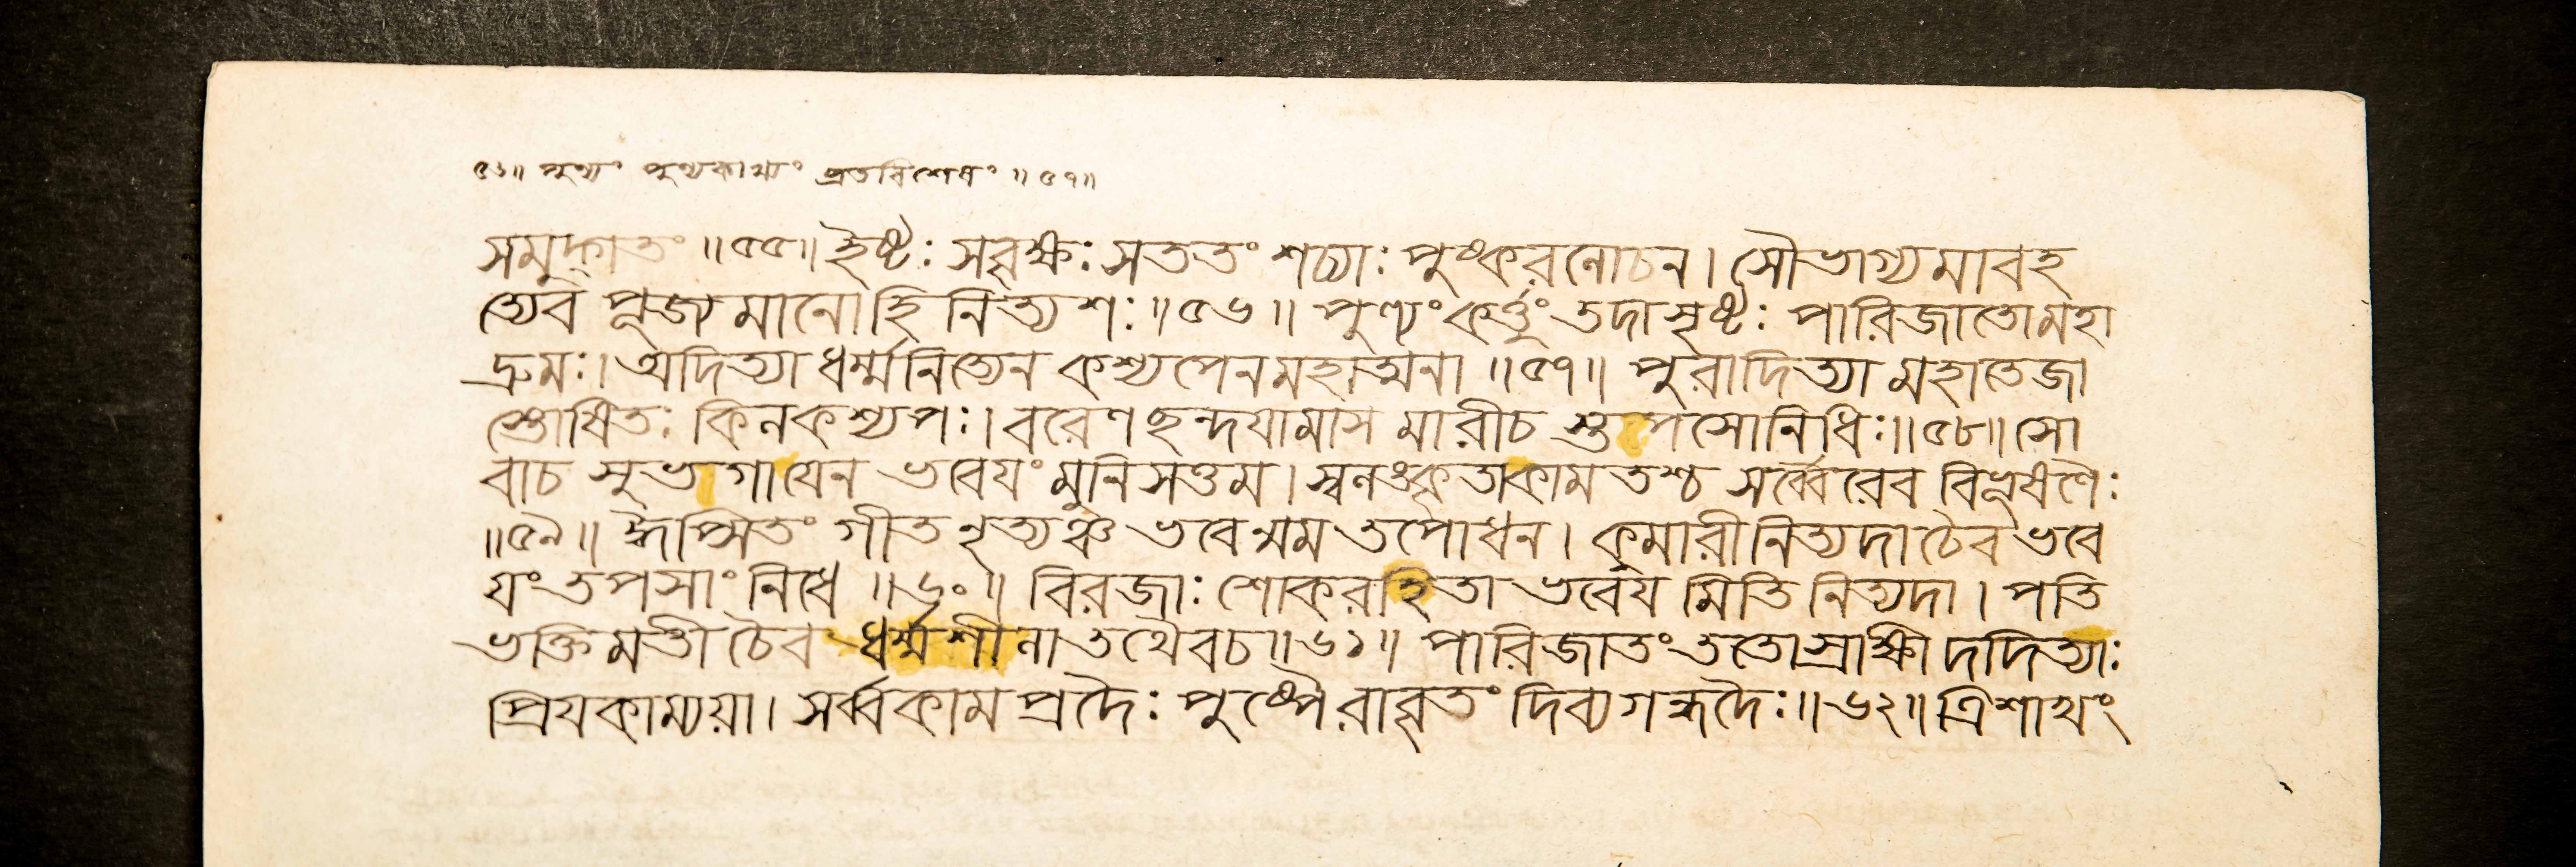 ৫৬॥ পুণ্যং পুণ্যকাখ্যং ব্রতবিশেষং ॥৫৭॥
সমুদ্ধাতং ॥৫৫॥ ইষ্টঃ সবৃক্ষঃ সততং শচ্যাঃ পুষ্করলোচন। সৌভাগ্যমাবহ
ত্যেব পূজ্যমানোহি নিত্যশঃ ॥৫৬॥ পুণ্যং কর্ত্তুং তদাসৃষ্টঃ পারিজাতোমহা
দ্রুমঃ। অদিত্যা ধর্ম্মনিত্যেন কশ্যপেনমহাত্মনা ॥৫৭॥ পুরাদিত্যা মহাতেজা
স্তোষিতঃ কিলকশ্যপঃ। বরেণ ছন্দযামাস মারীচ স্তপসোনিধিঃ॥৫৮॥ সো
বাচ সুভাগাযেন ভবেযং মুনিসত্তম। স্বলঙ্কৃতাকাম তশ্চ সর্ব্বৈরেব বিভূষণৈঃ
॥৫৯॥ ঈপ্সিতং গীতনৃত্যঞ্চ ভবেন্মম তপোধন। কুমারী নিত্যদা চৈব ভবে
যং তপসাং নিধে ॥৬০॥ বিরজাঃ শোকরহিতা ভবেয মিতি নিত্যদা। পতি
ভক্তিমতী চৈব ধর্ম্মশীলা তথৈবচ॥৬১॥ পারিজাতং ততোস্রাক্ষী দদিত্যাঃ
প্রিযকাম্যয়া। সর্ব্বকাম প্রদৈঃ পুষ্পৈরাবৃতং দিব্যগন্ধদৈঃ॥৬২॥ ত্রিশাখং